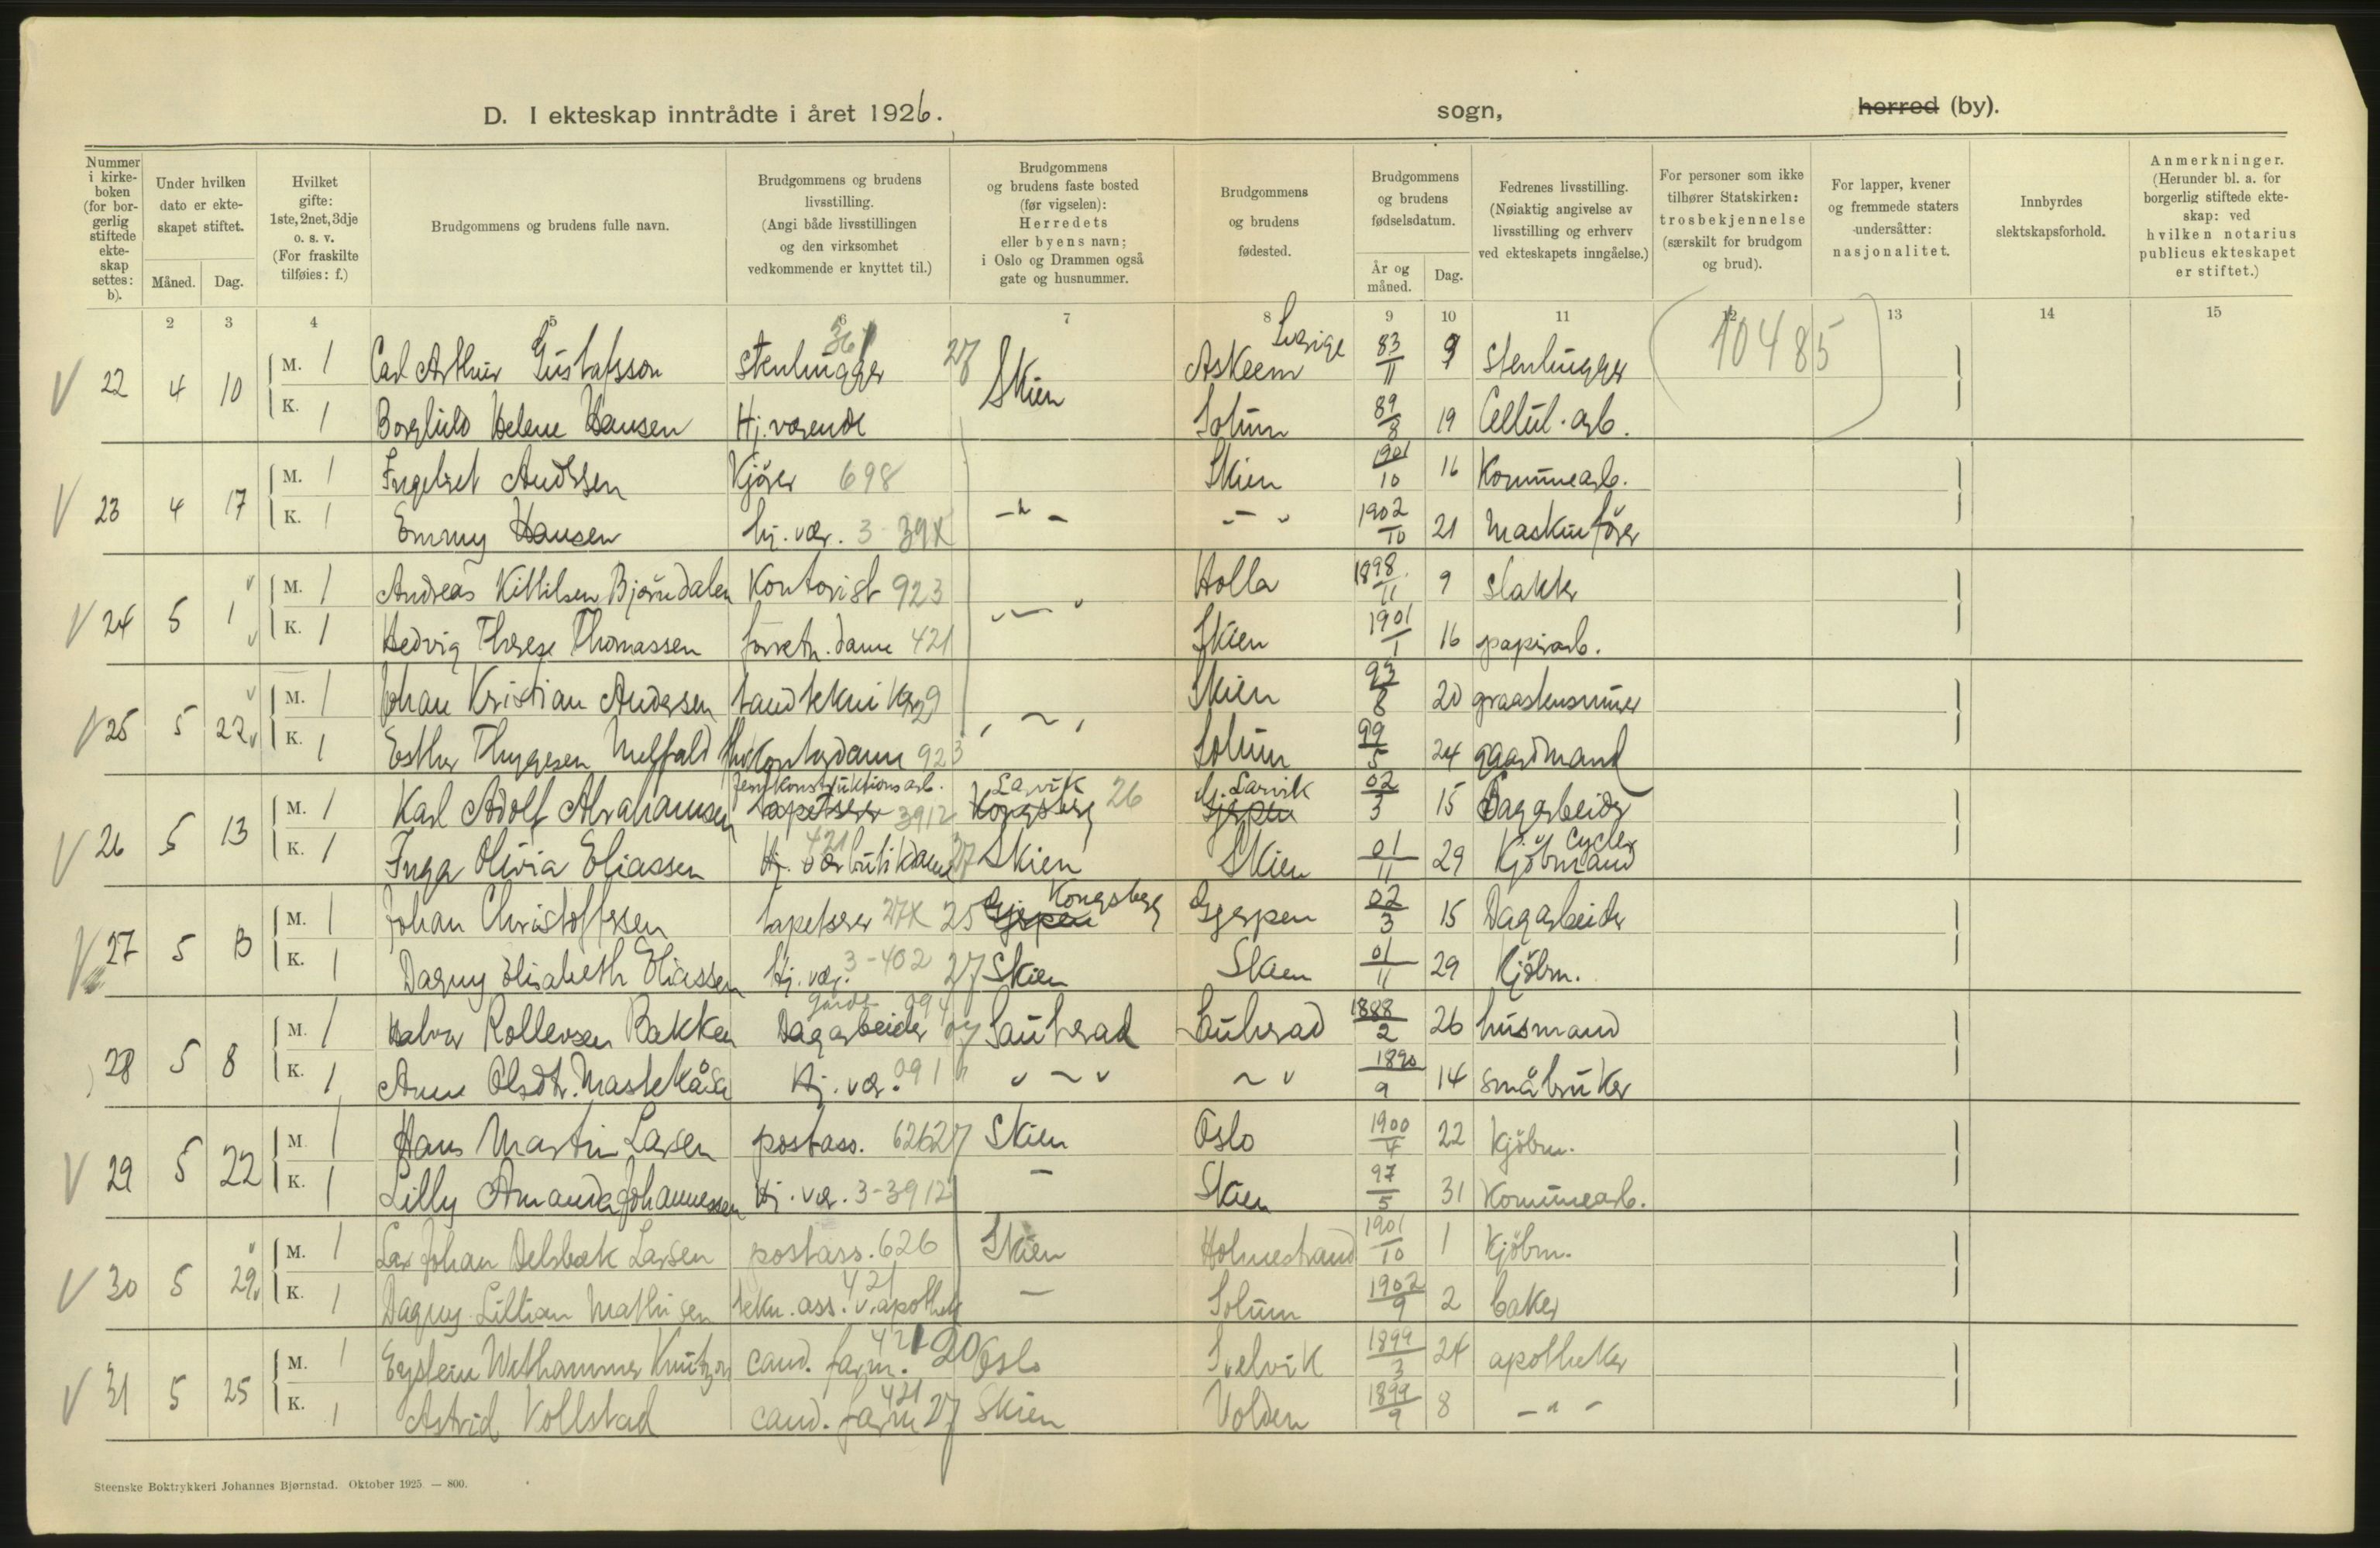 D. I ekteskap inntrådte i året 1926. sogn, herred (by).
Nummer i kirke-boken (for bor-gerlig stiftede ekte-skap settes: b).
Under hvilken dato er ekte-skapet stiftet.
Måned. Dag.
Hvilket gifte: 1ste, 2net, 3dje o. s. v. (For fraskilte tilføies: f.)
Brudgommens og brudens fulle navn.
Brudgommens og brudens livsstilling. (Angi både livsstillingen og den virksomhet vedkommende er knyttet til.)
Brudgommens og brudens faste bosted (før vigselen): Herredets eller byens navn; i Oslo og Drammen også gate og husnummer.
Brudgommens og brudens fødested.
Brudgommens og brudens fødselsdatum.
År og måned. Dag.
Fedrenes livsstilling. (Nøiaktig angivelse av livsstilling og erhverv ved ekteskapets inngåelse.)
For personer som ikke tilhører Statskirken: trosbekjennelse (særskilt for brudgom og brud).
For lapper, kvener og fremmede staters undersåtter: nasjonalitet.
Innbyrdes slektskapsforhold.
Anmerkninger. (Herunder bl. a. for borgerlig stiftede ekte-skap: ved hvilken notarius publicus ekteskapet er stiftet.)
2 3 4 5 6 7 8 9 10 11 12 13 14 15
V 22 4 10 M. 1 Carl Arthur Gustafsson Stenhugger 361 27 Skien Askeem Sverige 83/11 9 Stenhugger (10485)
K. 1 Borghild Helene Hansen Hj.værende Solum 89/8 19 Cellul.arb.
V 23 4 17 M. 1 Ingebret Andersen Kjører 698 Skien 1901/10 16 Kommunearb.
K. 1 Emmy Hansen hj. vær. 3-39X -"- -"- 1902/10 21 Maskinfører
V 24 5 1 M. 1 Andreas Kittilsen Bjørndalen Kontorist 923 Holla 1898/11 9 slakter
K. 1 Hedvig Therese Thomassen forretn. dame 421 Skien 1901/1 16 papirarb.
V 25 5 22 M. 1 Johan Kristian Andersen tandtekniker 29 Skien 93/8 20
K. 1 Esther Thygesen Melfald Kontordame 923 Solum 99/5 24 gaardmand
V 26 5 13 M. 1 Karl Adolf Abrahamsen Jernkonstruktionsarb. tapetserer 3912 Larvik Kongsberg 26 Larvik Gjerpen 02/3 15 Dagarbeider
K. 1 Inga Olivia Eliassen Hj. vær butikdame 421 27 Skien Skien 01/11 29 Cycle Kjøbmand
V 27 5 13 M. 1 Johan Christoffersen tapetserer 27X 25 Gjerpen Kongsberg Gjerpen 02/3 15 Dagarbeider
K. 1 Dagny Elisabeth Eliassen Hj. vær. 3-402 27 Skien Skien 01/11 29 Kjøbm.
28 5 8 M. 1 Halvor Rollevsen Bakken Dagarbeider Sauherad Sauherad 1888/2 26 husmand
K. 1 Anne Olsdt. Hj. vær. 091 " ~ " ~ " 1890/9 14 småbruker
V 29 5 22 M. 1 Hans Martin Larsen postass. 626 27 Skien Oslo 1900/4 22 Kjøbm.
K. 1 Lilly Amanda Johannessen Hj. vær. 3-3912 - Skien 97/5 31 Kommunearb.
V 30 5 29 M. 1 Lars Johan Delsbæk Larsen postass. 626 Skien Holmestrand 1901/10 1 Kjøbm.
K. 1 Dagny Lillian Mathisen tekn. ass. v. apothek 421 - Solum 1902/9 2 baker
V 31 5 25 M. 1 Eystein Wethammer Knutzon cand. farm. 421 20 Oslo Svelvik 1899/3 24 apotheker
K. 1 Astrid Vollstad cand. farm 421 27 Skien Volden 1899/9 8 -"-
Steenske Boktrykkeri Johannes Bjørnstad. Oktober 1925 — 800.